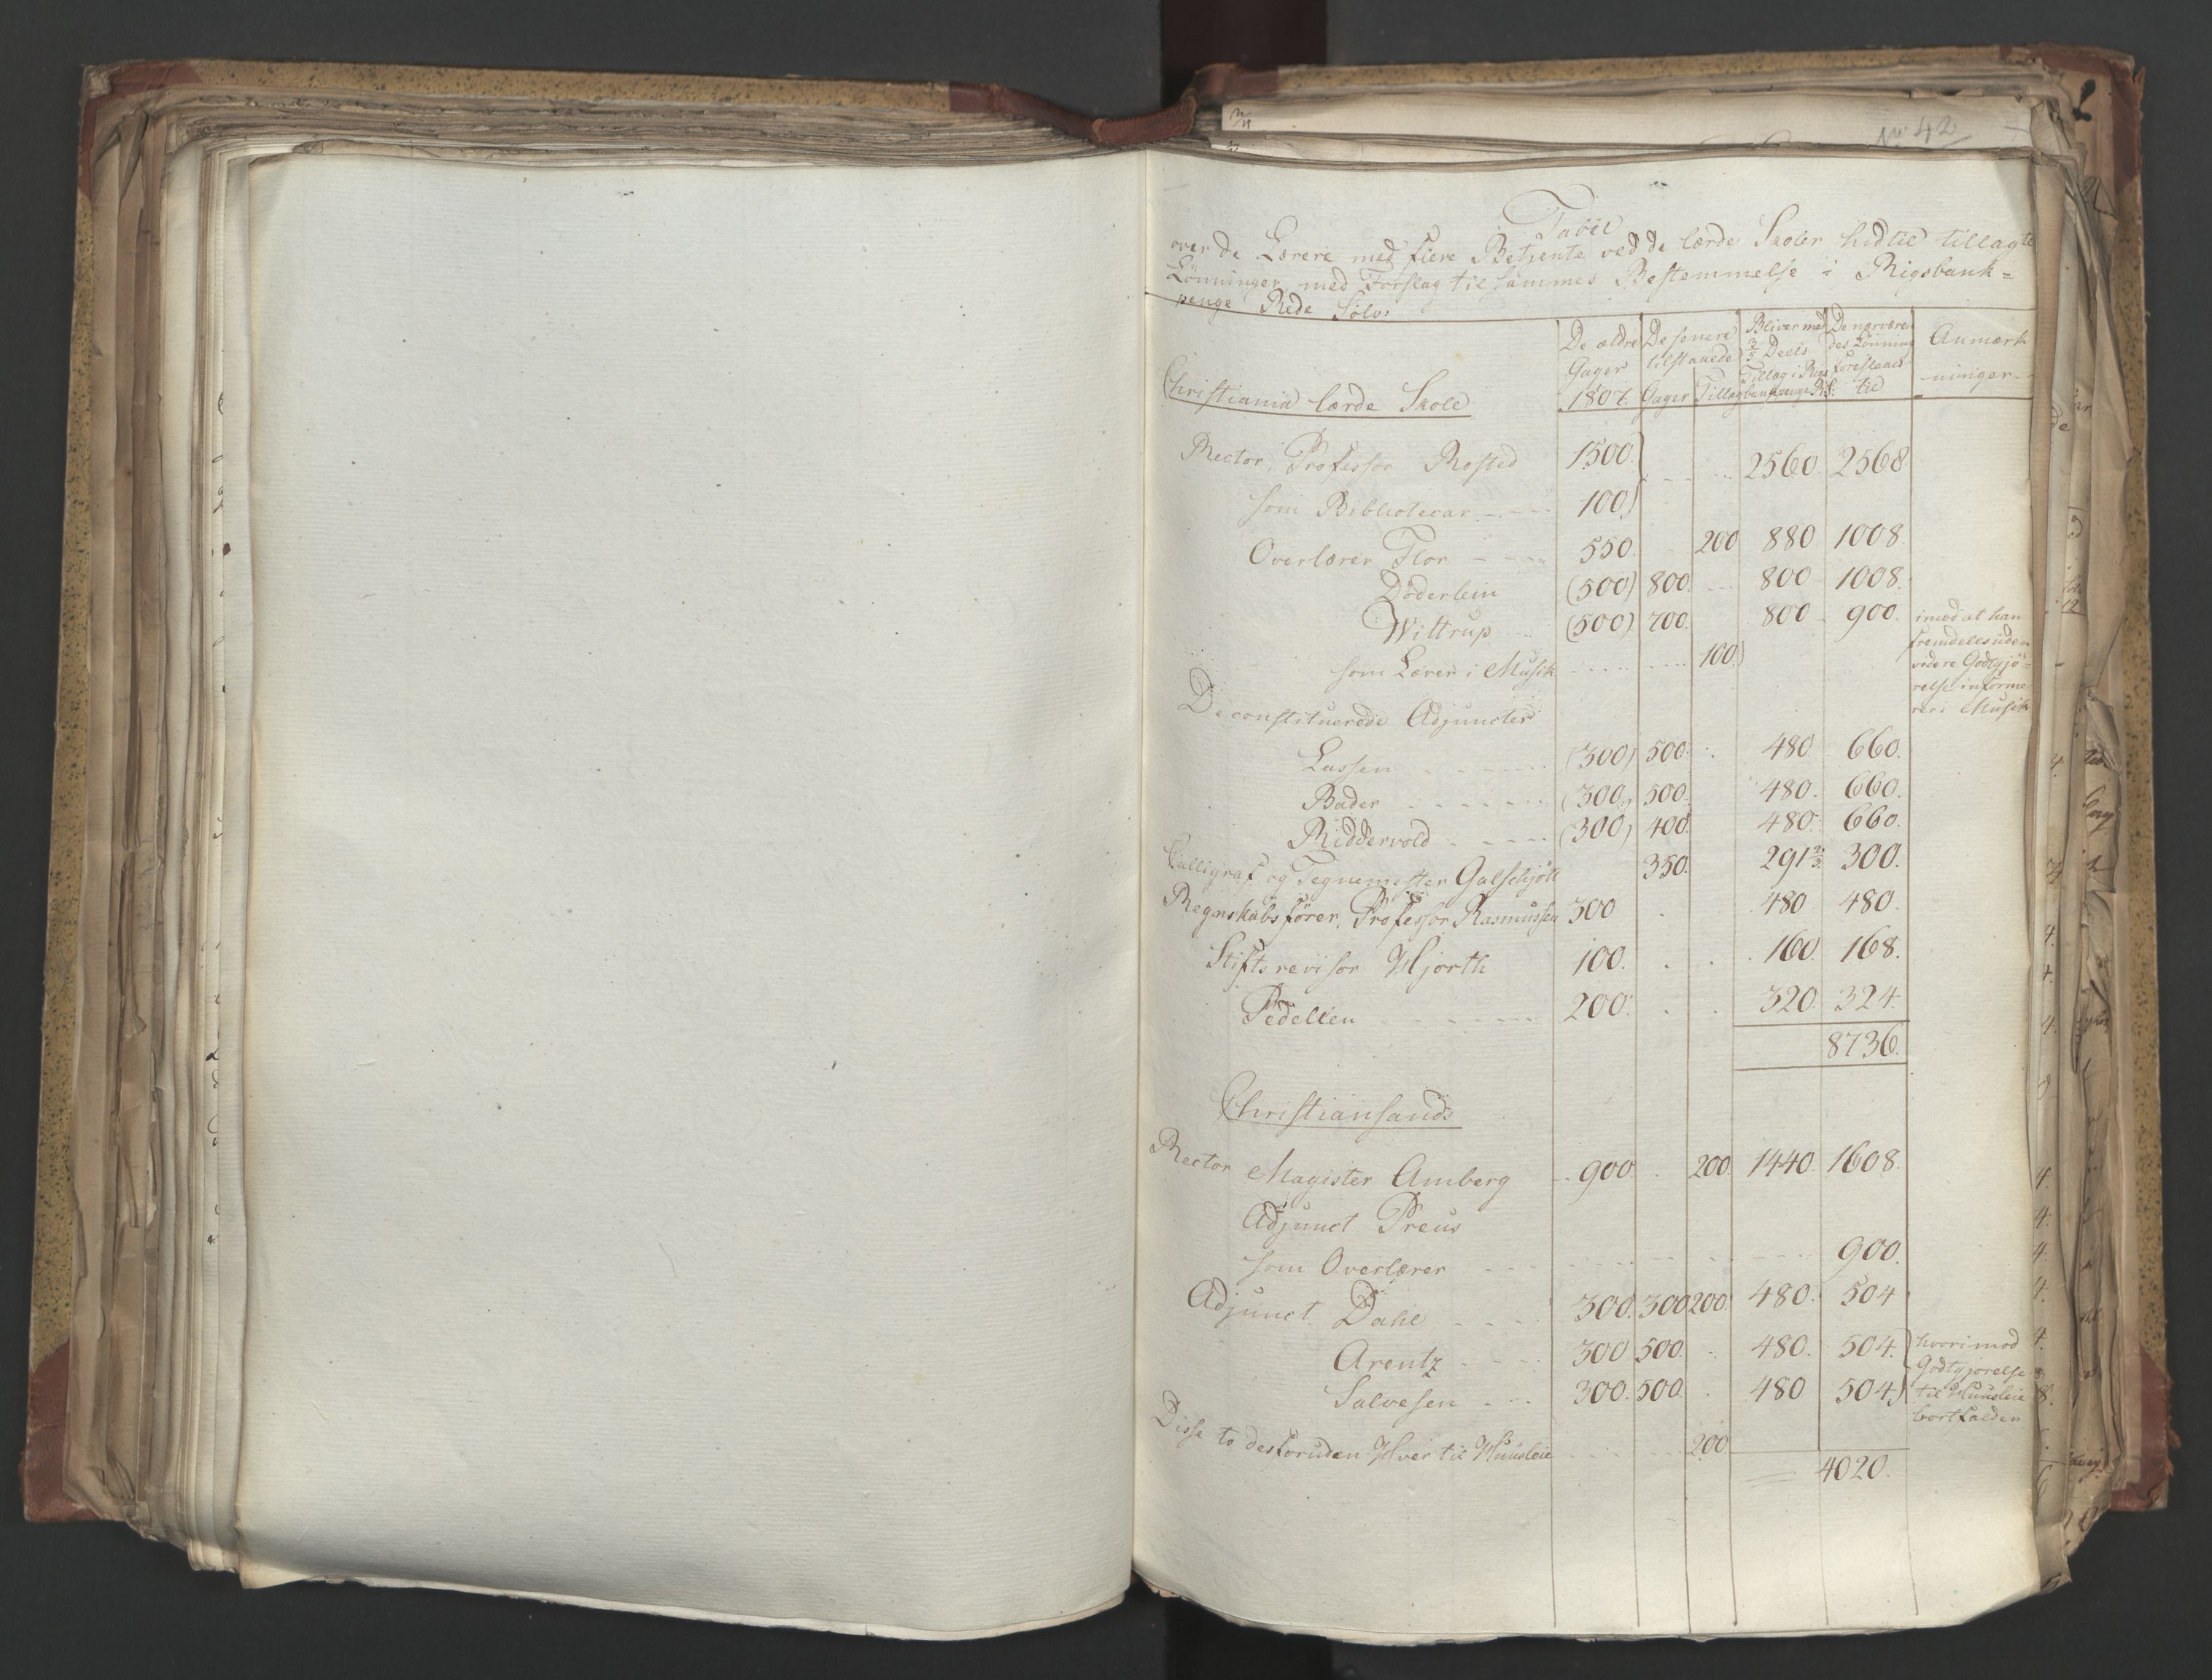 No 42
Tabel
over de Lærere med flere Betjente ved de lærde Skoler hidtil tillagte
Lönninger, med Forslag til sammes Bestemmelse i Rigsbank=
penge Rede Sölv:
De ældre Gager 1807. De senere tilstaaede Gager Tillæg Bliver med 3/5 Deels Tillæg i Rigsbankpenge R. S. De nærværendes Lönning foreslaaes til Anmærkninger
Christiania lærde Skole
Rector, Professor Rosted 1500. 2560. 2568.
som Bibliotecar 100
Overlærer Flor 550. 200 880 1008.
Döderlein (500) 800. 800 1008.
Wittrup (500) 700. 800 900. imod at han
fremdeles uden
videre Godtgjö=
relse informe
rer i Musik
som Lærer i Musik 100.
De constituerede Adjuncter
Lassen (300) 500. 480 660.
Bader (300) 500. 480. 660.
Riddervold (300) 400. 480. 660.
Calligraf og Tegnemester Galschjött 350. 291 2/3 300.
Regnskabsförer, Professor Rasmussen 300 480 480.
Stiftsrevisor Hjorth 100. 160. 168.
Pedellen 200. 320. 324.
8736.
Christiansands
Rector Magister Amberg 900. 200 1440. 1608.
Adjunct Preus
som Overlærer 900.
Adjunct Dahl 300. 300 200. 480. 504
Arentz 300 500. 480. 504. hvorimod
Godtgjörelse
til Huusleie
bortfalder
Salvesen 300. 500. 480 504.
Disse to desforuden Hver til Huusleie 200
4020.